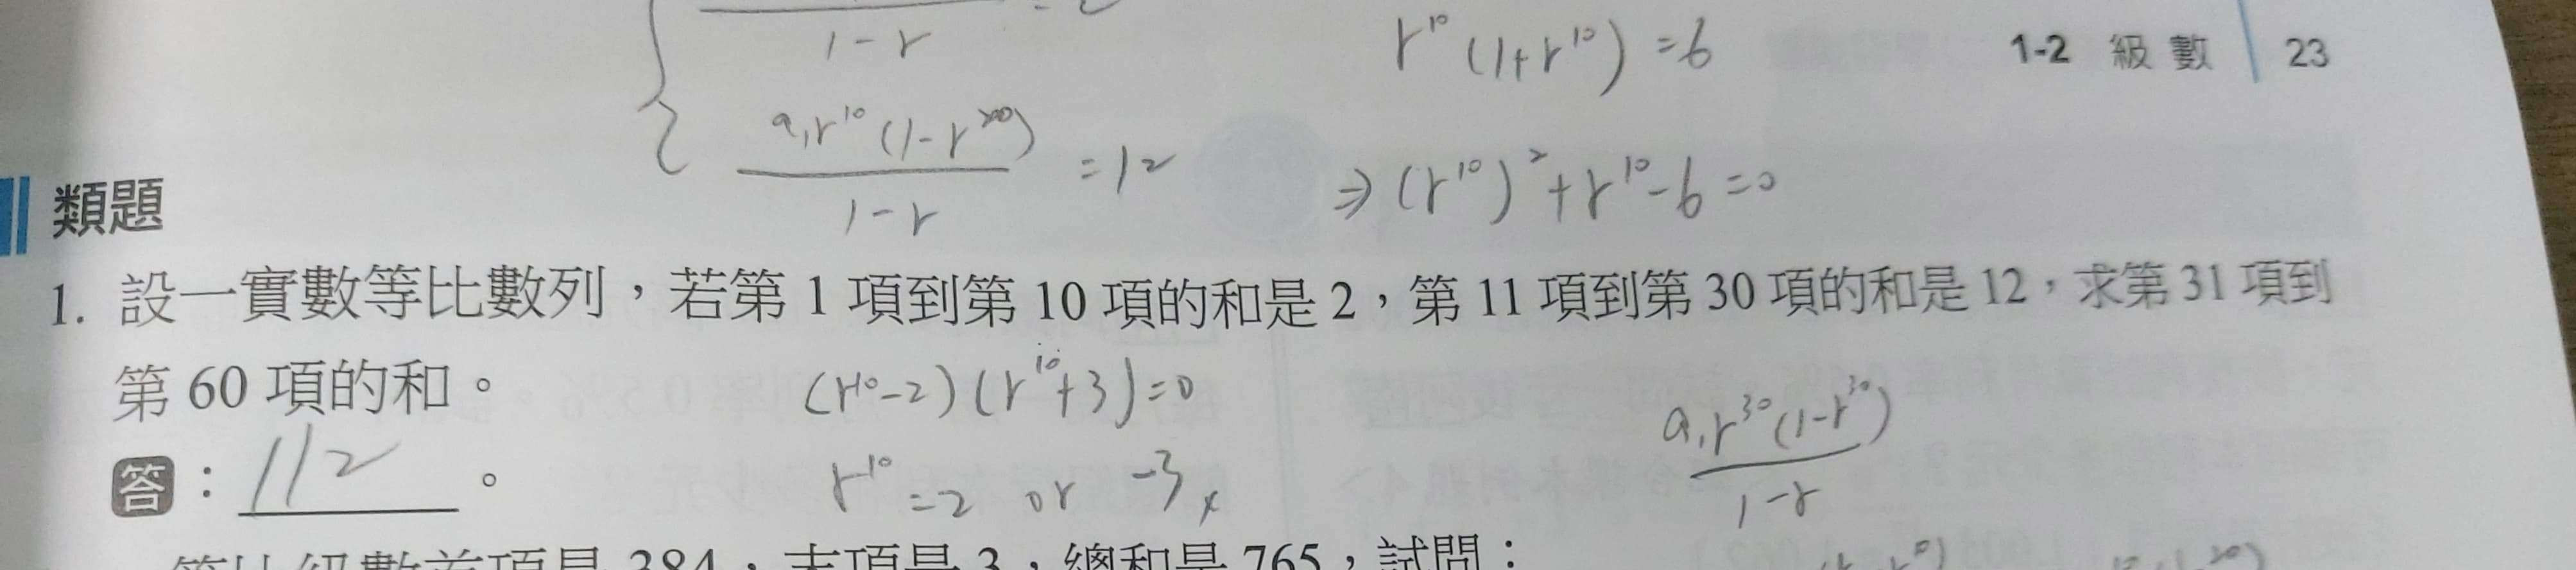 1-r
r¹⁰(1+r¹⁰)=6
1-2 級數 23
a₁r¹⁰(1-r²⁰)
=12
1-r
⇒(r¹⁰)²+r¹⁰-6=0
類題
1. 設一實數等比數列，若第 1 項到第 10 項的和是 2，第 11 項到第 30 項的和是 12，求第 31 項到
第 60 項的和。
(r¹⁰-2)(r¹⁰+3)=0
a₁r³⁰(1-r³⁰)
1-r
答：112。
r¹⁰=2 or -3 ×
等比級數首項是 384，末項是 3，總和是 765，試問：